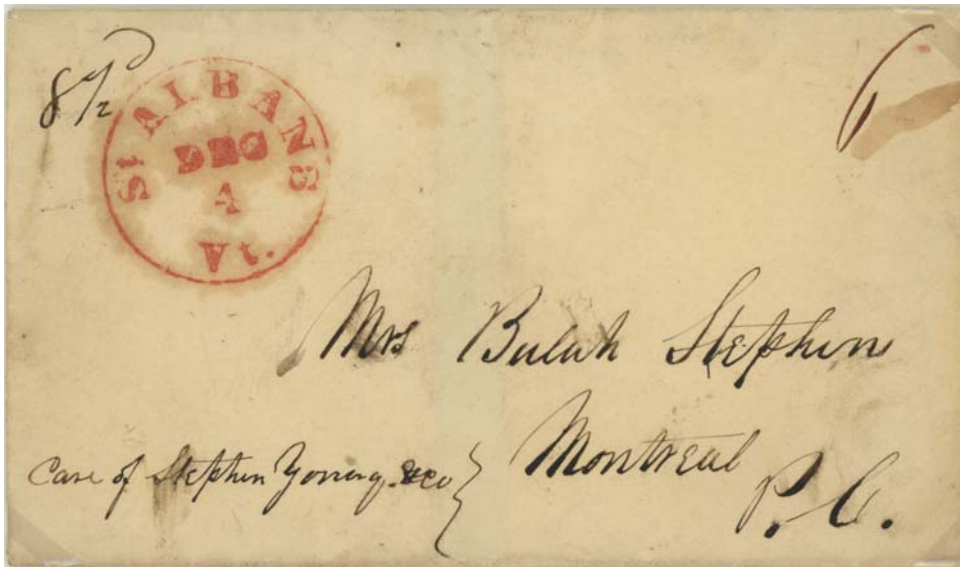 8 1/2 d
6
St ALBANS
DEC
4
Vt.
Mrs Bulah Stephen
Montreal
Care of Stephen Young &co
P. C.